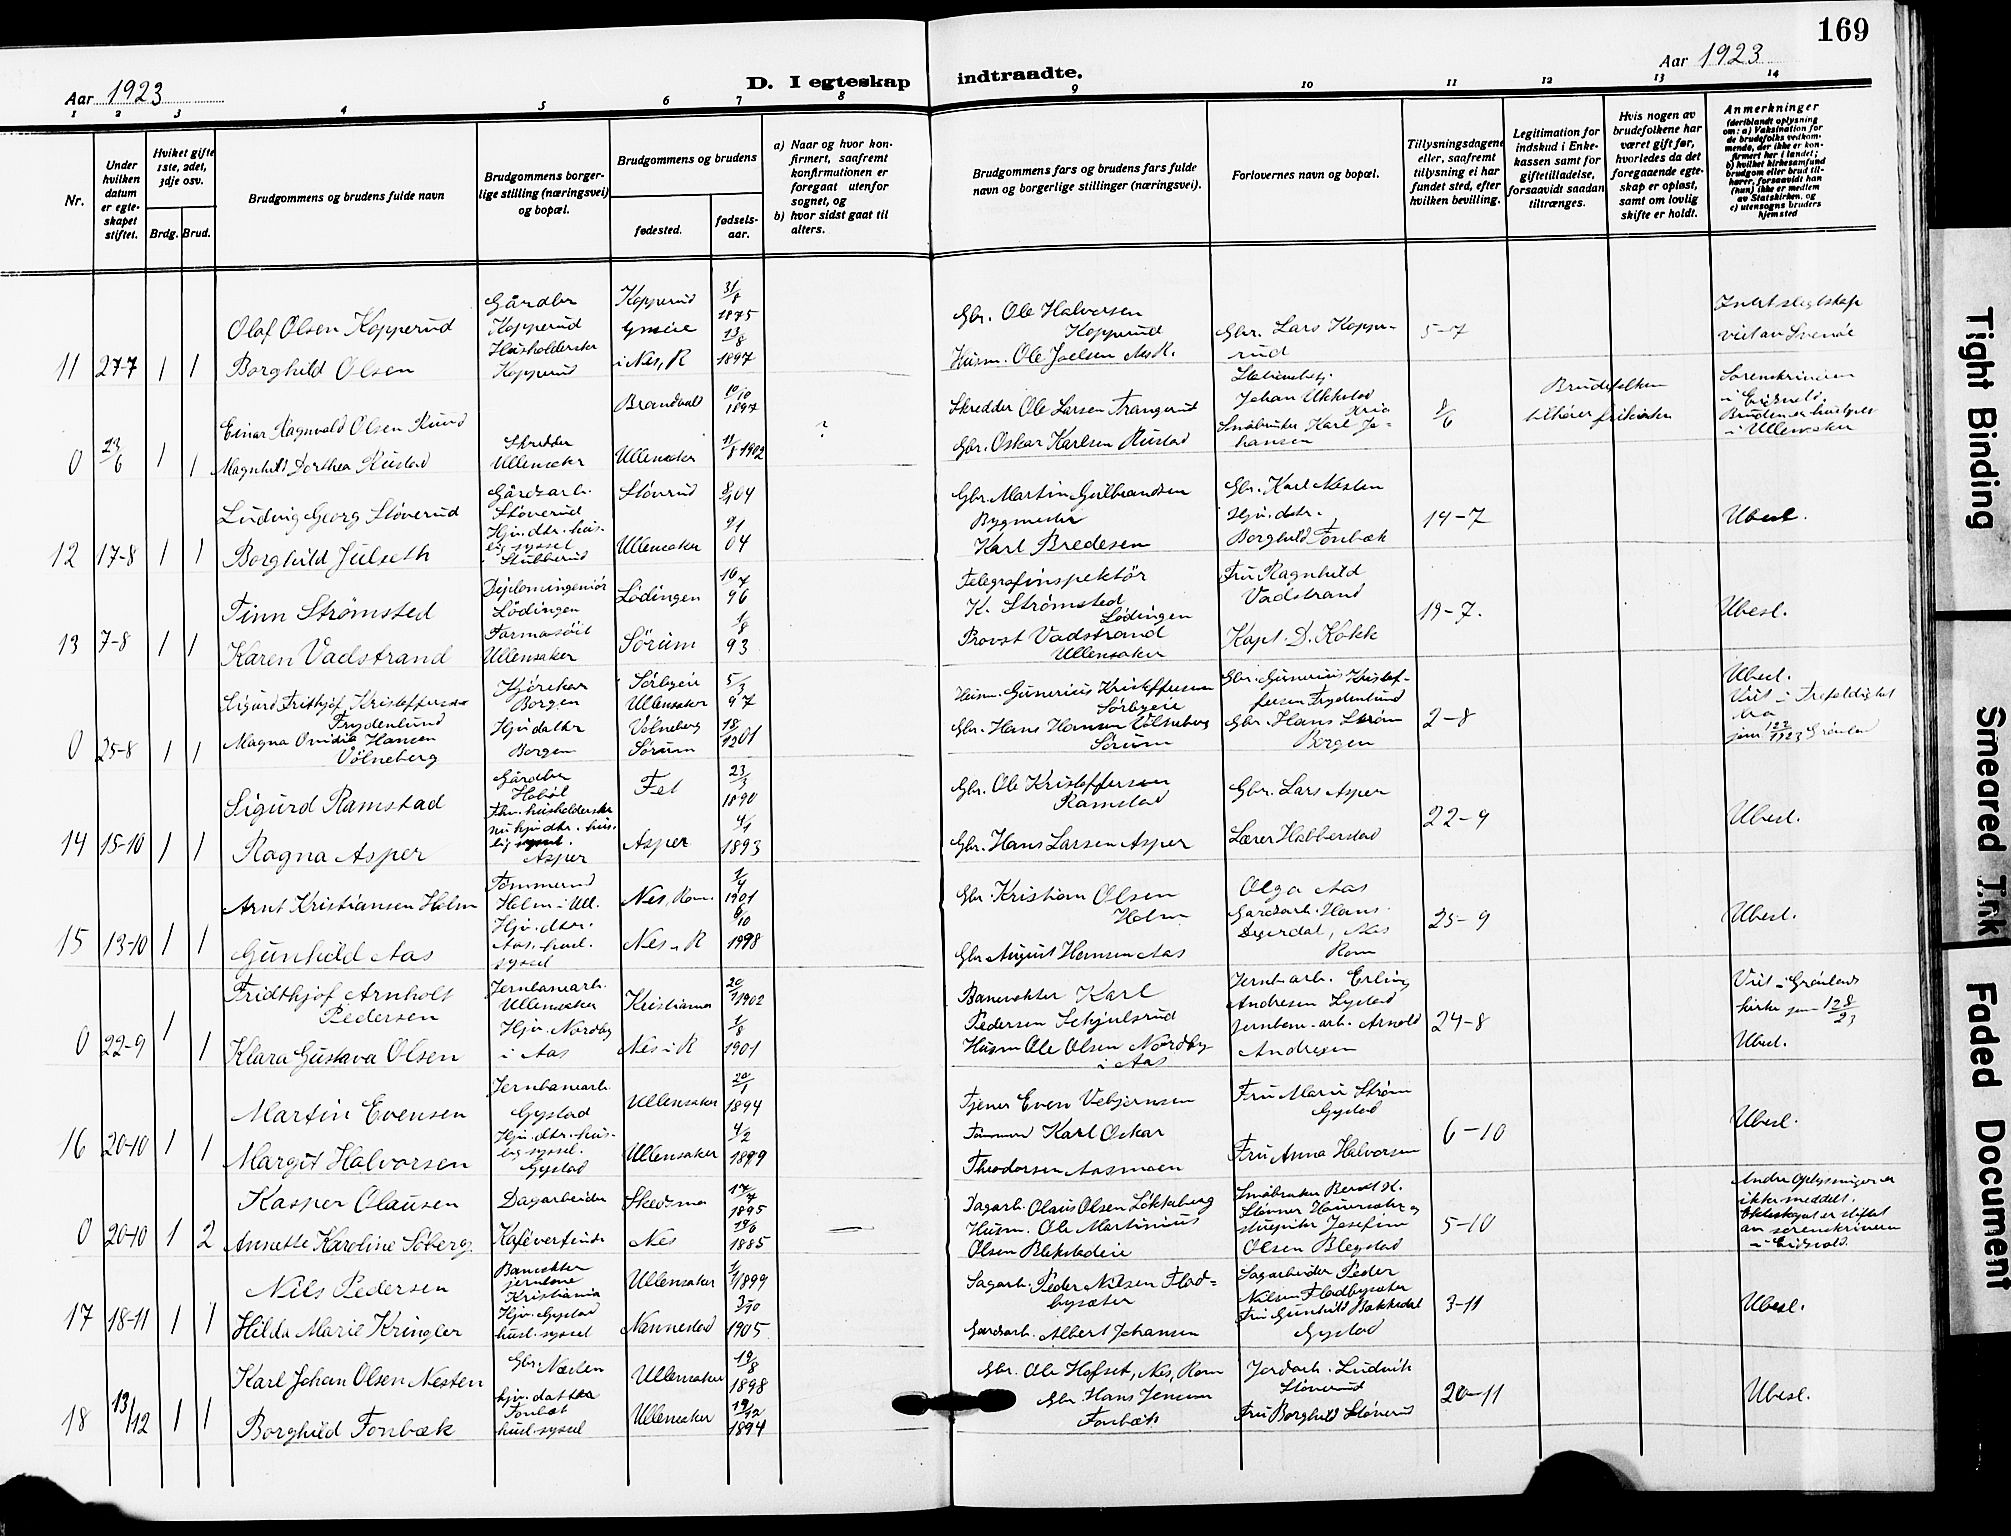 169
Aar 1923
D. I egteskap indtraadte.
Aar 1923
1 2 3 4 5 6 7 8 9 10 11 12 13 14
Nr.
Under hvilken datum er egteskapet stiftet.
Hviket gifte 1ste, 2det, 3dje osv.
Brdg. Brud.
Brudgommens og brudens fulde navn
Brudgommens borgerlige stilling (næringsvei) og bopæl.
Brudgommens og brudens
fødested.
fødselsaar.
a) Naar og hvor konfirmert, saafremt konfirmationen er foregaat utenfor sognet, og
b) hvor sidst gaat til alters.
Brudgommens fars og brudens fars fulde navn og borgerlige stillinger (næringsvei).
Forlovernes navn og bopæl.
Tillysningsdagene eller, saafremt tillysning ei har fundet sted, efter hvilken bevilling.
Legitimation for indskud i Enkekassen samt for giftetilladelse, forsaavidt saadan tiltrænges.
Hvis nogen av brudefolkene har været gift før, hvorledes da det foregaaende egteskap er opløst, samt om lovlig skifte er holdt.
Anmerkninger
(deriblandt oplysning om: a) Vaksination for de brudefolks vedkommende, der ikke er konfirmert her i landet; b) hvilket kirkesamfund brudgom eller brud tilhører, forsaavidt han (hun) ikke er medlem av Statskirken, og c) utensogns bruders hjemsted
11 27-7 1 1
Olaf Olsen Kopperud
Gårdbr Kopperud
Kopperud
31/8 1875
Gbr. Ole Halvorsen Kopperud
Gbr. Lars Kopperud
5-7
Borghild Olsen
Husholderske Kopperud
i Nes, R
13/8 1897
Husm. Ole Joelsen Nes R.
0 23/6 1 1
Einar Ragnvald Olsen Ruud
Brandvold
10/10 1897
?
Skredder Ole Larsen Trangerud
Johan Ukkestad
8/6
Brudefolken tilhører frikirken
Sorenskriveren i Eidsvold.
i Ullensaker
Magnhild Dorthea Rustad
Skredder Ullensaker
Ullensaker
11/8 1902
Gbr. Oskar Karlsen Rustad
Småbruker Karl Johansen
12 17-8 1 1
Ludvig Georg Støverud
Gårdsarb. Støverud
Støverud
8/1 04
Gbr. Martin Gulbrandsen
Gbr. Karl Nesten
14-7
Ubesl.
Borghild Julseth
Hjv. dtr. huslig syssel Stubberud
Ullensaker
9/1 04
Bygmester Karl Bredesen
Hjv. dtr. Borghild Fonbæk
13 7-8 1 1
Finn Strømsted
Diplomingeniör Lödingen
Lödingen
16/7 96
Telegrafinspektör K. Strømsted Lødingen
Fru Ragnhild Vadstrand
19-7.
Ubesl.
Karen Vadstrand
Farmasöit Ullensaker
Sörum
1/8 93
Provst Vadstrand Ullensaker
Kapt. D. Kokk
0 25-8 1 1
Sigurd Fridthjof Kristoffersen Frydenlund
Kjörekar Borgen
Sörbyeie Ullensaker
5/3 97
Husm. Gunerius Kristoffersen Sörbyeie
Gbr. Gunerius Kristoffersen Frydenlund
2-8
Ubesl.
Magna Ovidia Hansen Völneberg
Hjv. datter Borgen
Volneberg Sørum
18/1 1901
Gbr. Hans Hansen Völneberg Sörum
Gbr. Hans Strøm Borgen
14 15-10 1 1
Sigurd Ramstad
Gårdbr Hobøl
Fet
23/3 1890
Gbr. Ole Kristoffersen Ramstad
Gbr. Lars Asper
22-9
Ubesl.
Ragna Asper
Fhv. husholderske nu hjv. dtr. huslig syssel. Asper
Asper
4/1 1893
Gbr. Hans Larsen Asper
Lærer Habberstad
15 13-10 1 1
Arnt Kristiansen Holm
Tømmermd Holm i Ull.
Nes, Rom.
1/4 1901
Gbr. Kristian Olsen Holm
Olga Aas
25-9
Ubesl.
Gunhild Aas
Hjv. dtr. Aas. husl. syssel
Nes i R
6/10 1898
Gbr. August Hansen Aas
Gardsarb. Hans Dyerdal, Nes Rom
0 22-9 1 1
Fridthjof Arnholt Pedersen
Jernbanearb. Ullensaker
Kristiania
20/1 1902
Banevokter Karl Pedersen Schjulsrud
Jernb.arb. Erling Andresen Gystad
24-8
Viet i Grønlands kirke
Ubesl.
Klara Gustava Olsen
Hjv. Nordby i Aas
Nes i R
1/8 1901
Husm Ole Olsen Nordby i Aas
Jernban. arb. Arnold Andresen
16 20-10 1 1
Martin Evensen
Jernbanearb. Gystad
Ullensaker
20/1 1894
Tjener Even Vebjørnsen
Fru Marie Strøm Gystad
6-10
Ubesl.
Margit Halvorsen
Hjv. dtr. huslig syssel. Gystad
Ullensaker
4/2 1899
Tømmerm Karl Oskar Theodorsen Aasmoen
Fru Anna Halvorsen
0 20-10 1 2
Kasper Olausen
Dagarbeider
Skedsmo
17/7 1895
Dagarb. Olaus Olsen Løkkeberg
5-10
Andre oplysninger er ikke meddelt. Ekteskapet er stiftet av sorenskriveren i Eidsvold.
Annette Karoline Søberg
Kafévertinde
Nes
19/6 1885
Husm. Ole Martinius Olsen Blekstadeie
Josefine Olsen Blegstad
17 18-11 1 1
Nils Pedersen
Banevokter jernbane Kristiania
Ullensaker
1/1 1899
Sagarb. Peder Nilsen Flodbysæter
Sagarbeider Peder Nilsen Flodbysæter
3-11
Ubesl.
Hilda Marie Kringler
Hjv. Gystad husl. syssel
Nannestad
3/10 1905
Gardsarb. Albert Johansen
Fru Gunhild Bakkedal Gystad
18 13/12 1 1
Karl Johan Olsen Nesten
Gbr Nesten
Ullensaker
19/8 1898
Gbr. Ole Hofset, Nes, Rom
Jordarb. Ludvik Støverud
20-11
Ubesl.
Borghild Fonbæk
hjv. datter Fonbæk husl. syssel
Ullensaker
19/12 1894
Gbr. Hans Jensen Fonbæk
Fru Borghild Støverud
Tight Binding
Smeared Ink
Faded Document